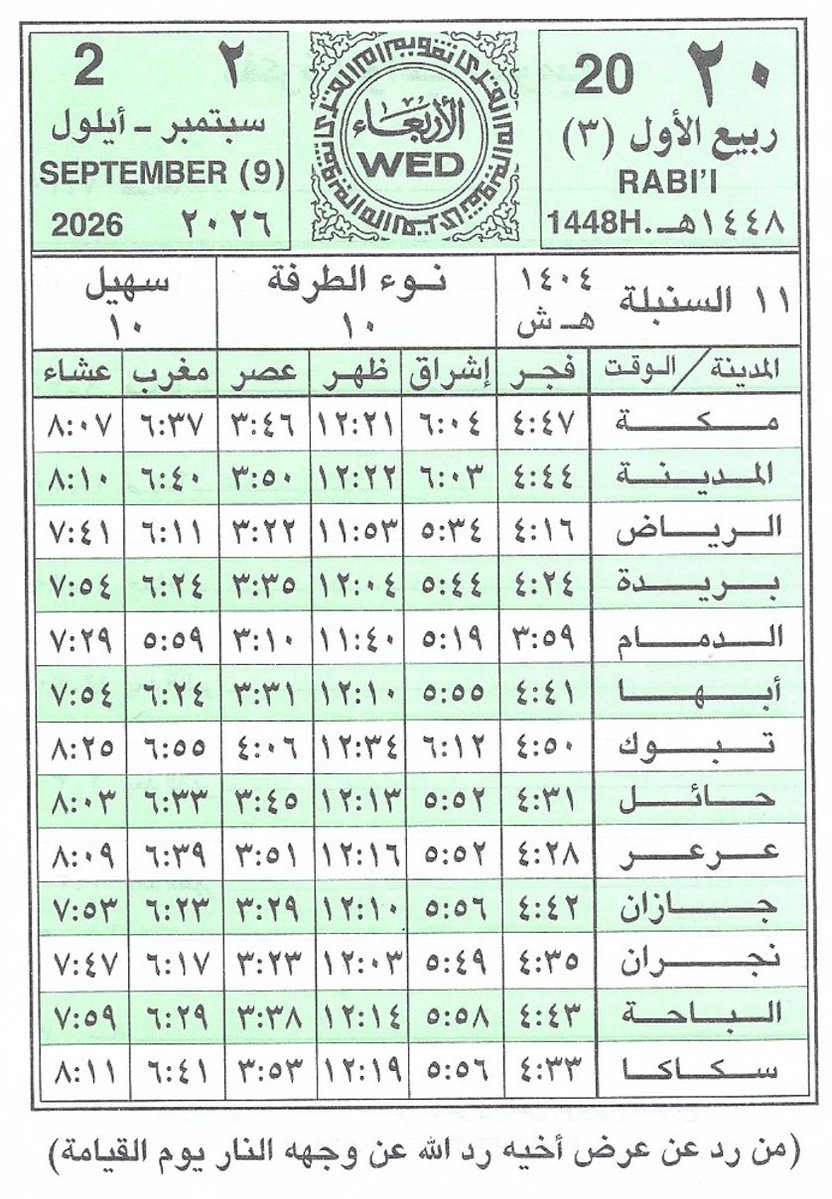 ٢٠ 20
ربيع الأول (٣)
RABI'I
1448H. ١٤٤٨هـ
الأربعاء
WED
٢ 2
سبتمبر - أيلول
SEPTEMBER (9)
2026 ٢٠٢٦
تقويم أم القرى تقويم أم القرى تقويم أم القرى تقويم أم القرى
١١ السنبلة ١٤٠٤ هـ ش
نوء الطرفة
١٠
سهيل
١٠
المدينة / الوقت فجر إشراق ظهر عصر مغرب عشاء
مكة ٤:٤٧ ٦:٠٤ ١٢:٢١ ٣:٤٦ ٦:٣٧ ٨:٠٧
المدينة ٤:٤٤ ٦:٠٣ ١٢:٢٢ ٣:٥٠ ٦:٤٠ ٨:١٠
الرياض ٤:١٦ ٥:٣٤ ١١:٥٣ ٣:٢٢ ٦:١١ ٧:٤١
بريدة ٤:٢٤ ٥:٤٤ ١٢:٠٤ ٣:٣٥ ٦:٢٤ ٧:٥٤
الدمام ٣:٥٩ ٥:١٩ ١١:٤٠ ٣:١٠ ٥:٥٩ ٧:٢٩
أبها ٤:٤١ ٥:٥٥ ١٢:١٠ ٣:٣١ ٦:٢٤ ٧:٥٤
تبوك ٤:٥٠ ٦:١٢ ١٢:٣٤ ٤:٠٦ ٦:٥٥ ٨:٢٥
حائل ٤:٣١ ٥:٥٢ ١٢:١٣ ٣:٤٥ ٦:٣٣ ٨:٠٣
عرعر ٤:٢٨ ٥:٥٢ ١٢:١٦ ٣:٥١ ٦:٣٩ ٨:٠٩
جازان ٤:٤٢ ٥:٥٦ ١٢:١٠ ٣:٢٩ ٦:٢٣ ٧:٥٣
نجران ٤:٣٥ ٥:٤٩ ١٢:٠٣ ٣:٢٣ ٦:١٧ ٧:٤٧
الباحة ٤:٤٣ ٥:٥٨ ١٢:١٤ ٣:٣٨ ٦:٢٩ ٧:٥٩
سكاكا ٤:٣٣ ٥:٥٦ ١٢:١٩ ٣:٥٣ ٦:٤١ ٨:١١
(من رد عن عرض أخيه رد الله عن وجهه النار يوم القيامة)